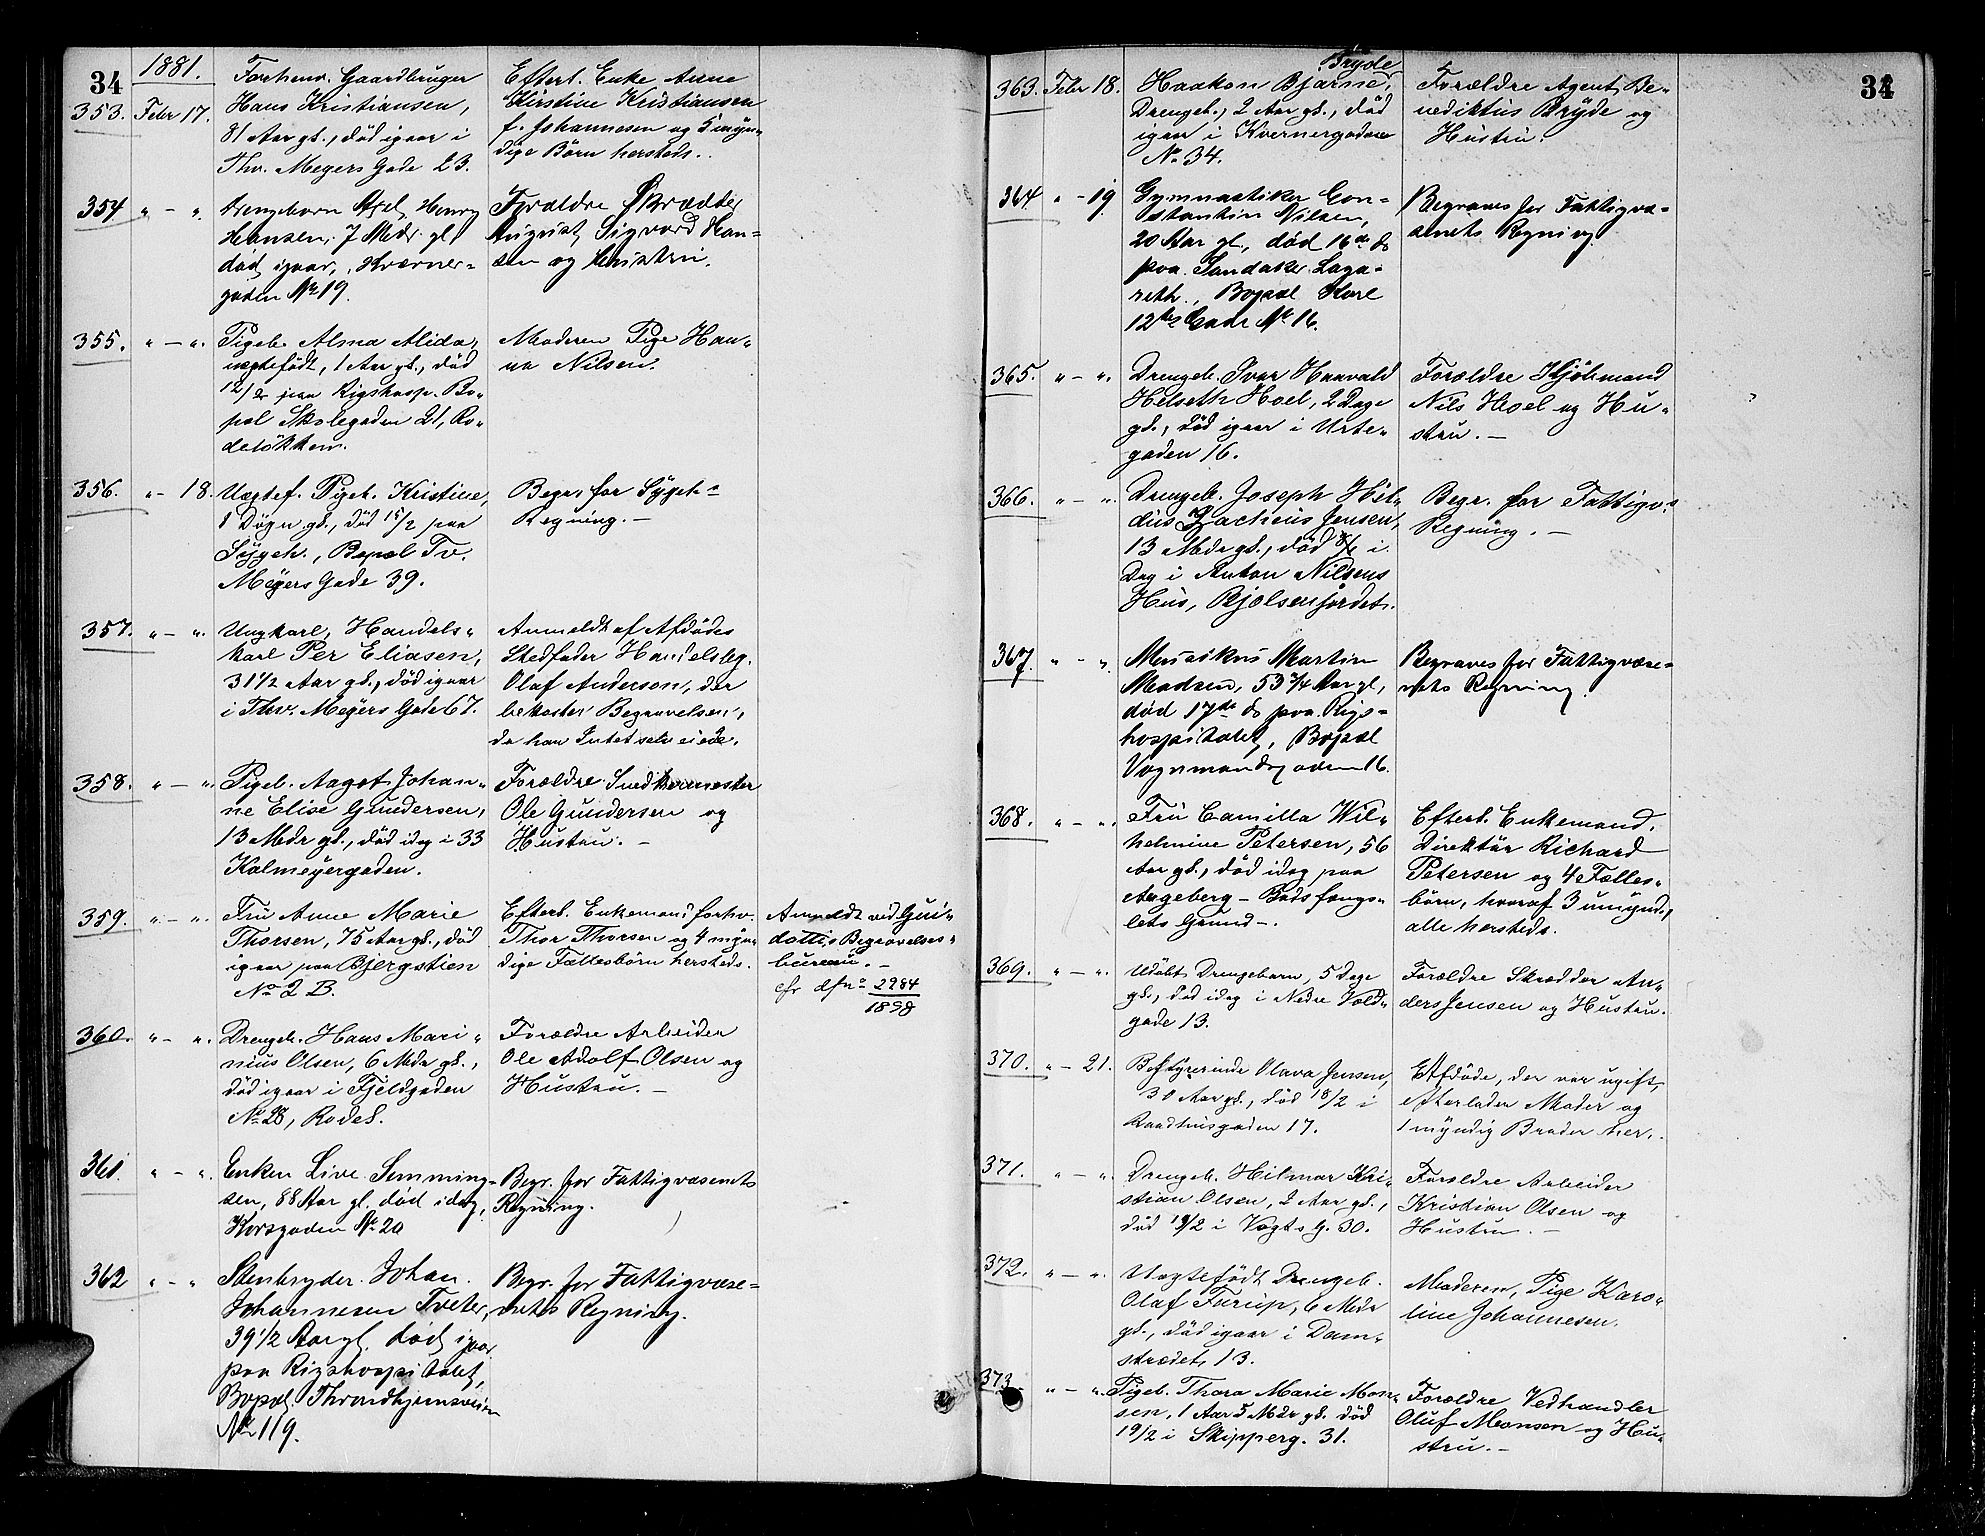 34
1881.
353. Febr 17.
Forhenv. Gaardbruger
Hans Kristiansen,
81 Aar gl., död igaar i
Thv. Meyers Gade 23.
Efterl. Enke Anne
Kirstine Kristiansen
f. Johannesen og 5 myn-
dige Börn hersteds.
354 " - ".
Drengebarn Axel Henry
Hansen, 7 Mdr. gl.
död igaar, Kværner-
gaden No 19.
Forældre Skrædder
August Sigvard Han-
sen og Hustru.
355. " - ".
Pigeb. Alma Alida,
uegtefödt, 1 Aar gl., död
12/2 paa Rigshosp. Bo-
pæl Skolegaden 21, Ro-
delökken.
Moderen Pige Han-
na Nilsen.
356. " - 18.
Uegtef. Pigeb. Kristine,
8 Dögn gl., död 15/2 paa
Sygeh., Bopæl Tv.
Meyers Gade 39.
Begr. for Sygeh.s
Regning. -
357. " - ".
Ungkarl, Handels-
karl Per Eliasen,
31 1/2 Aar gl., död igaar
i Thv. Meyers Gade 67.
Anmeldt af Afdödes
Stedfader Handelsbg.
Olaf Anderson, der
bekoster Begravelsen,
da han Intet selv eiede.
358. " - ".
Pigeb. Aagot Johan-
ne Elise Gundersen,
13 Mdr gl., död idag i 33
Kalmeyergaden.
Forældre Snedkermester
Ole Gundersen og
Hustru. -
359. " - ".
Fru Anne Marie
Thorsen, 75 Aar gl., död
igaar paa Bjergstien
No 2 B.
Efterl. Enkemand forhv.
Thor Thorsen og 4 myn-
dige Fællesbörn hersteds.
Anmeldt ved Gui-
dottis Begravelses-
bureau. -
cfr dfn° 2984
1898
360. " - ".
Drengeb. Hans Mari-
nius Olsen, 6 Mdr gl.,
död igaar i Fjeldgaden
No 28, Rodel.
Forældre Arbeider
Ole Adolf Olsen og
Hustru. -
361. " - ".
Enken Live Semming-
sen, 88 Aar gl. död idag,
Korsgaden No 20
Begr. for Fattigvæsenets
Regning.
362 " - "
Stenbryder Johan
Johannesen Tveter,
39 1/2 Aar gl. död igaar
paa Rigshospitalet,
Bopæl Throndhjemsveien
No 119.
Begr. for Fattigvæse-
nets Regning.
34
363. Febr 18.
Bryde
Haakon Bjarne,
Drengeb., 2 Aar gl., död
igaar i Kvernergaden
No 34.
Forældre Agent Be-
nediktus Bryde og
Hustru.
364 " - 19.
Gymnastiker Con-
stantin Nilsen,
20 Aar gl., död 16de ds
paa Sandaker Laza-
reth, Bopæl Karl
12tes Gade No 16.
Begraves for Fattigvæ-
senets Regning
365. " - ".
Drengeb. Ivar Haavald
Helseth Hoel, 2 Dage
gl., död igaar i Urte-
gaden 16.
Forældre Kjöbmand
Nils Hoel og Hu-
stru. -
366. " - ".
Drengeb. Joseph Hil-
dus Zacheüs Jensen,
13 Mdr gl., död i
Dag i Anton Nilsens
Hus, Bjölsenjordet.
Begr. for Fattigv.s
Regning. -
367. " - "
Musikus Martin
Madsen, 53 3/4 Aar gl,
död 17de ds paa Rigs-
hospitalet, Bopæl
Vognmandsgaden 16.
Begraves for Fattigvæse-
nets Regning.
368. " - ".
Fru Camilla Wil-
helmine Petersen, 56
Aar gl., död idag paa
Aageberg - Bodsfæng-
lets Grund -.
Efterl. Enkemand,
Direktör Richard
Petersen og 4 Fælles-
börn, hvoraf 3 umynd.,
alle hersteds.
369. " - ".
Udöbt Drengebarn, 5 Dage
gl., död idag i Nedre Vold-
gade 13.
Forældre Skrædder An-
ders Jensen og Hustru.
370. " - 21.
Bestyrerinde Olava Jensen,
30 Aar gl., död 18/2 i
Raadhusgaden 17.
Afdöde, der var ugift,
efterlader Moder og
1 myndig Broder her.
371. " - ".
Drengeb. Hilmar Kri-
stian Olsen, 2 Aar gl.,
död 19/2 i Vogts G. 30.
Forældre Arbeider
Kristian Olsen og
Hustru. -
372. " - ".
Uegtefödt Drengeb.
Olaf Furup, 6 Mdr
gl., död igaar i Dam-
strædet 13.
Moderen, Pige Karo-
line Johannesen.
373 " - ".
Pigeb. Thora Marie Mon-
sen, 1 Aar 5 Mdr gl. död
19/2 i Skipperg. 31.
Forældre Vedhandler
Oluf Monsen og Hu-
stru. -